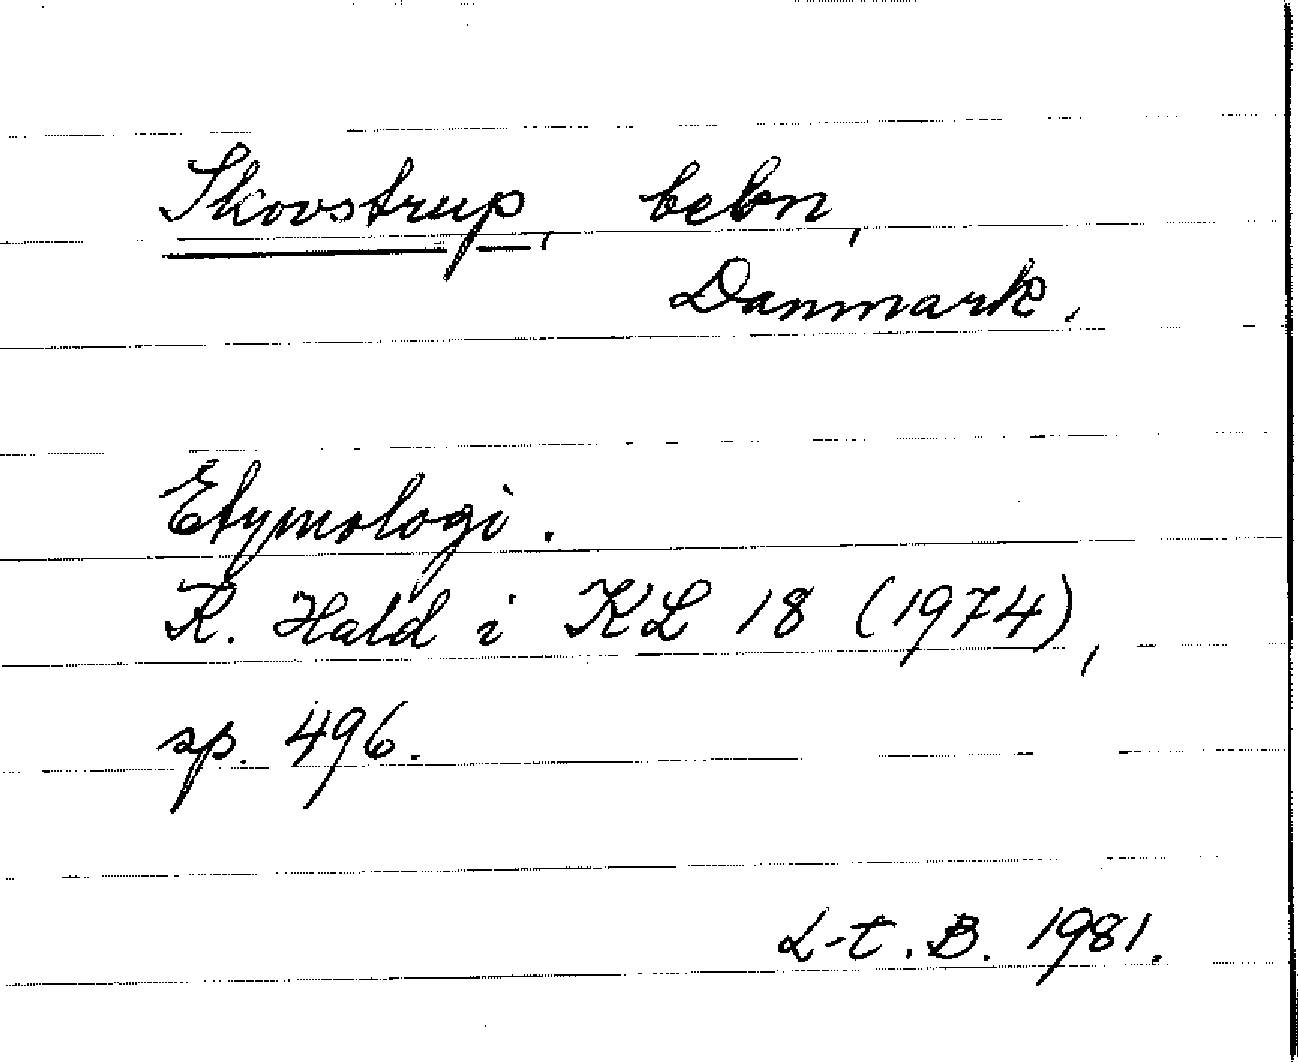 Skovstrup, bebn,
Danmark.
Etymologi.
K. Hald i KL 18 (1974),
sp. 496.
L-t. B. 1981.